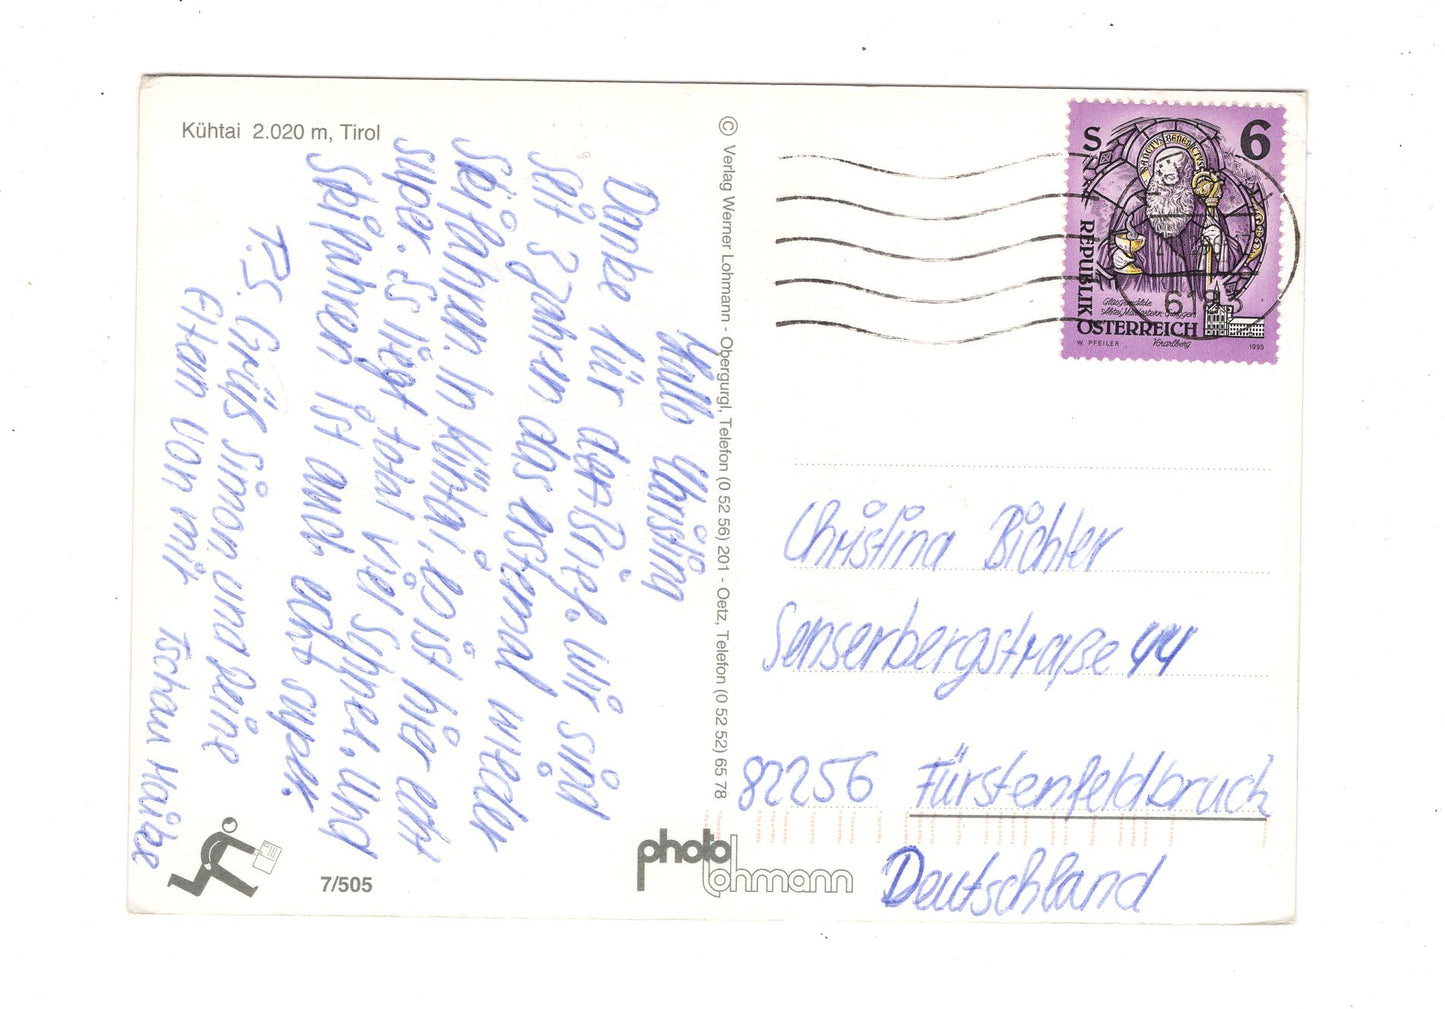 Kühtai 2.020 m, Tirol
Hallo Christina
Danke für den Brief. Wir sind
seit 3 Jahren das erstemal wieder
Skifahren. In Kühtai, es ist hier echt
super. Es liegt total viel Schnee. Und
Skifahren ist auch echt super.
P.S. Grüß Simon und Deine
Eltern von mir
Tschau Haike
7/505
© Verlag Werner Lohmann - Obergurgl, Telefon (0 52 56) 201 - Oetz, Telefon (0 52 52) 65 78
photo lohmann
S 6
REPUBLIK
ÖSTERREICH
SANCTVS BENEDICTVS
Glasgemälde
Abtei Mariastern-Gwiggen
Vorarlberg
W. PFEILER
1993
Christina Bichler
Senserbergstraße 44
82256 Fürstenfeldbruck
Deutschland